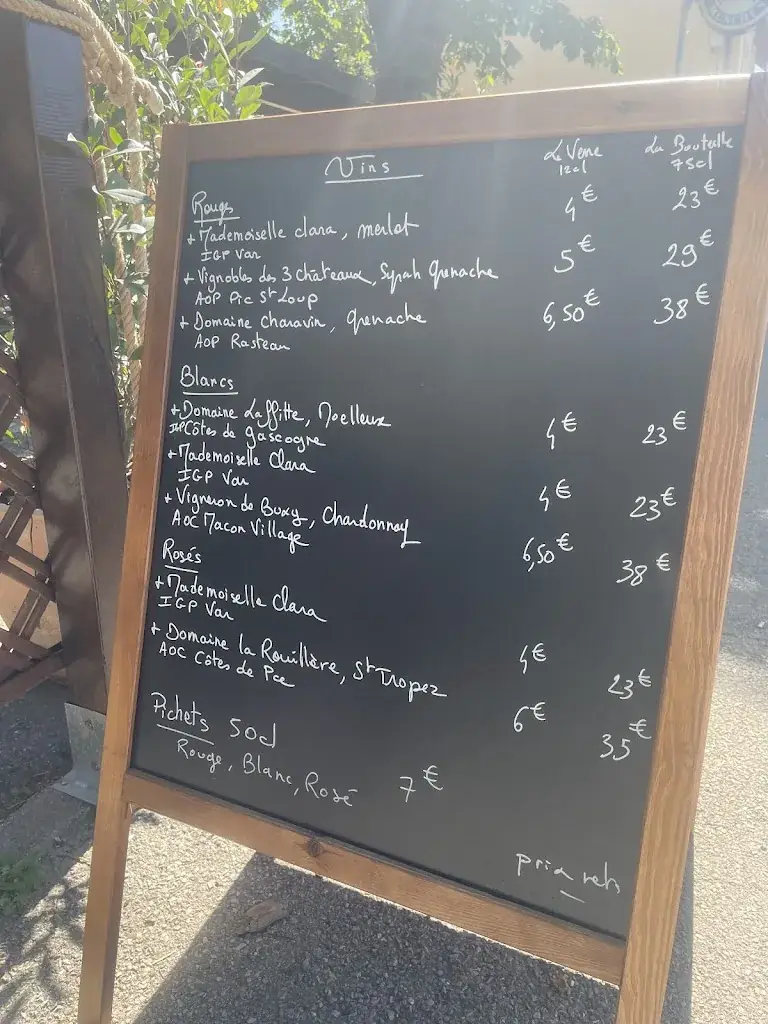 Vins Le Verre La Bouteille
12cl 75cl
Rouges
+ Mademoiselle Clara, merlot 4€ 23€
IGP Var
+ Vignobles des 3 Châteaux, Syrah Grenache 5€ 29€
AOP Pic St Loup
+ Domaine Charavin, Grenache 6,50€ 38€
AOP Rasteau
Blancs
+ Domaine Laffitte, Moelleux 4€ 23€
IGP Côtes de Gascogne
+ Mademoiselle Clara 4€ 23€
IGP Var
+ Vigneron de Buxy, Chardonnay 6,50€ 38€
AOC Macon Village
Rosés
+ Mademoiselle Clara 4€ 23€
IGP Var
+ Domaine la Rouillère, St Tropez 6€ 35€
AOC Côtes de Pce
Pichets 50cl
Rouge, Blanc, Rosé 7€
prix nets